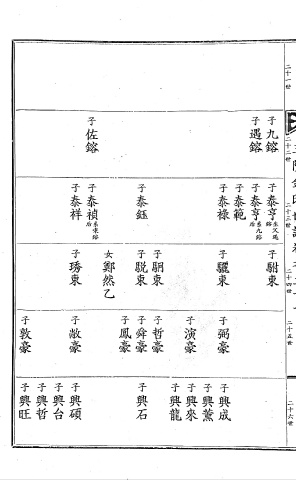 二十一世
二十二世
二十三世
二十四世
二十五世
二十六世
子九鎔
子遇鎔
子佐鎔
子泰亨
子泰亨
子泰範
子泰祿
子泰鈺
子泰禎
子泰祥
子駙東
子驪東
子駉東
子駾東
女鄭然乙
子琇東
子弼豪
子演豪
子哲豪
子舜豪
子鳳豪
子敞豪
子敦豪
子興成
子興薰
子興來
子興龍
子興石
子興碩
子興台
子興哲
子興旺